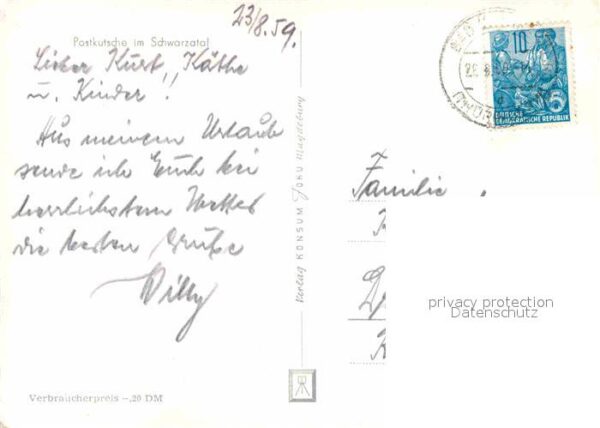 23/8.59.
Postkutsche im Schwarzatal
Lieber Kurt, Käthe
u. Kinder!
Aus meinem Urlaub
sende ich Euch bei
herrlichstem Wetter
die besten Grüße
Willy
Verbraucherpreis -,20 DM
Verlag KONSUM FOKU Magdeburg
10
DEUTSCHE
DEMOKRATISCHE REPUBLIK
Familie
privacy protection
Datenschutz